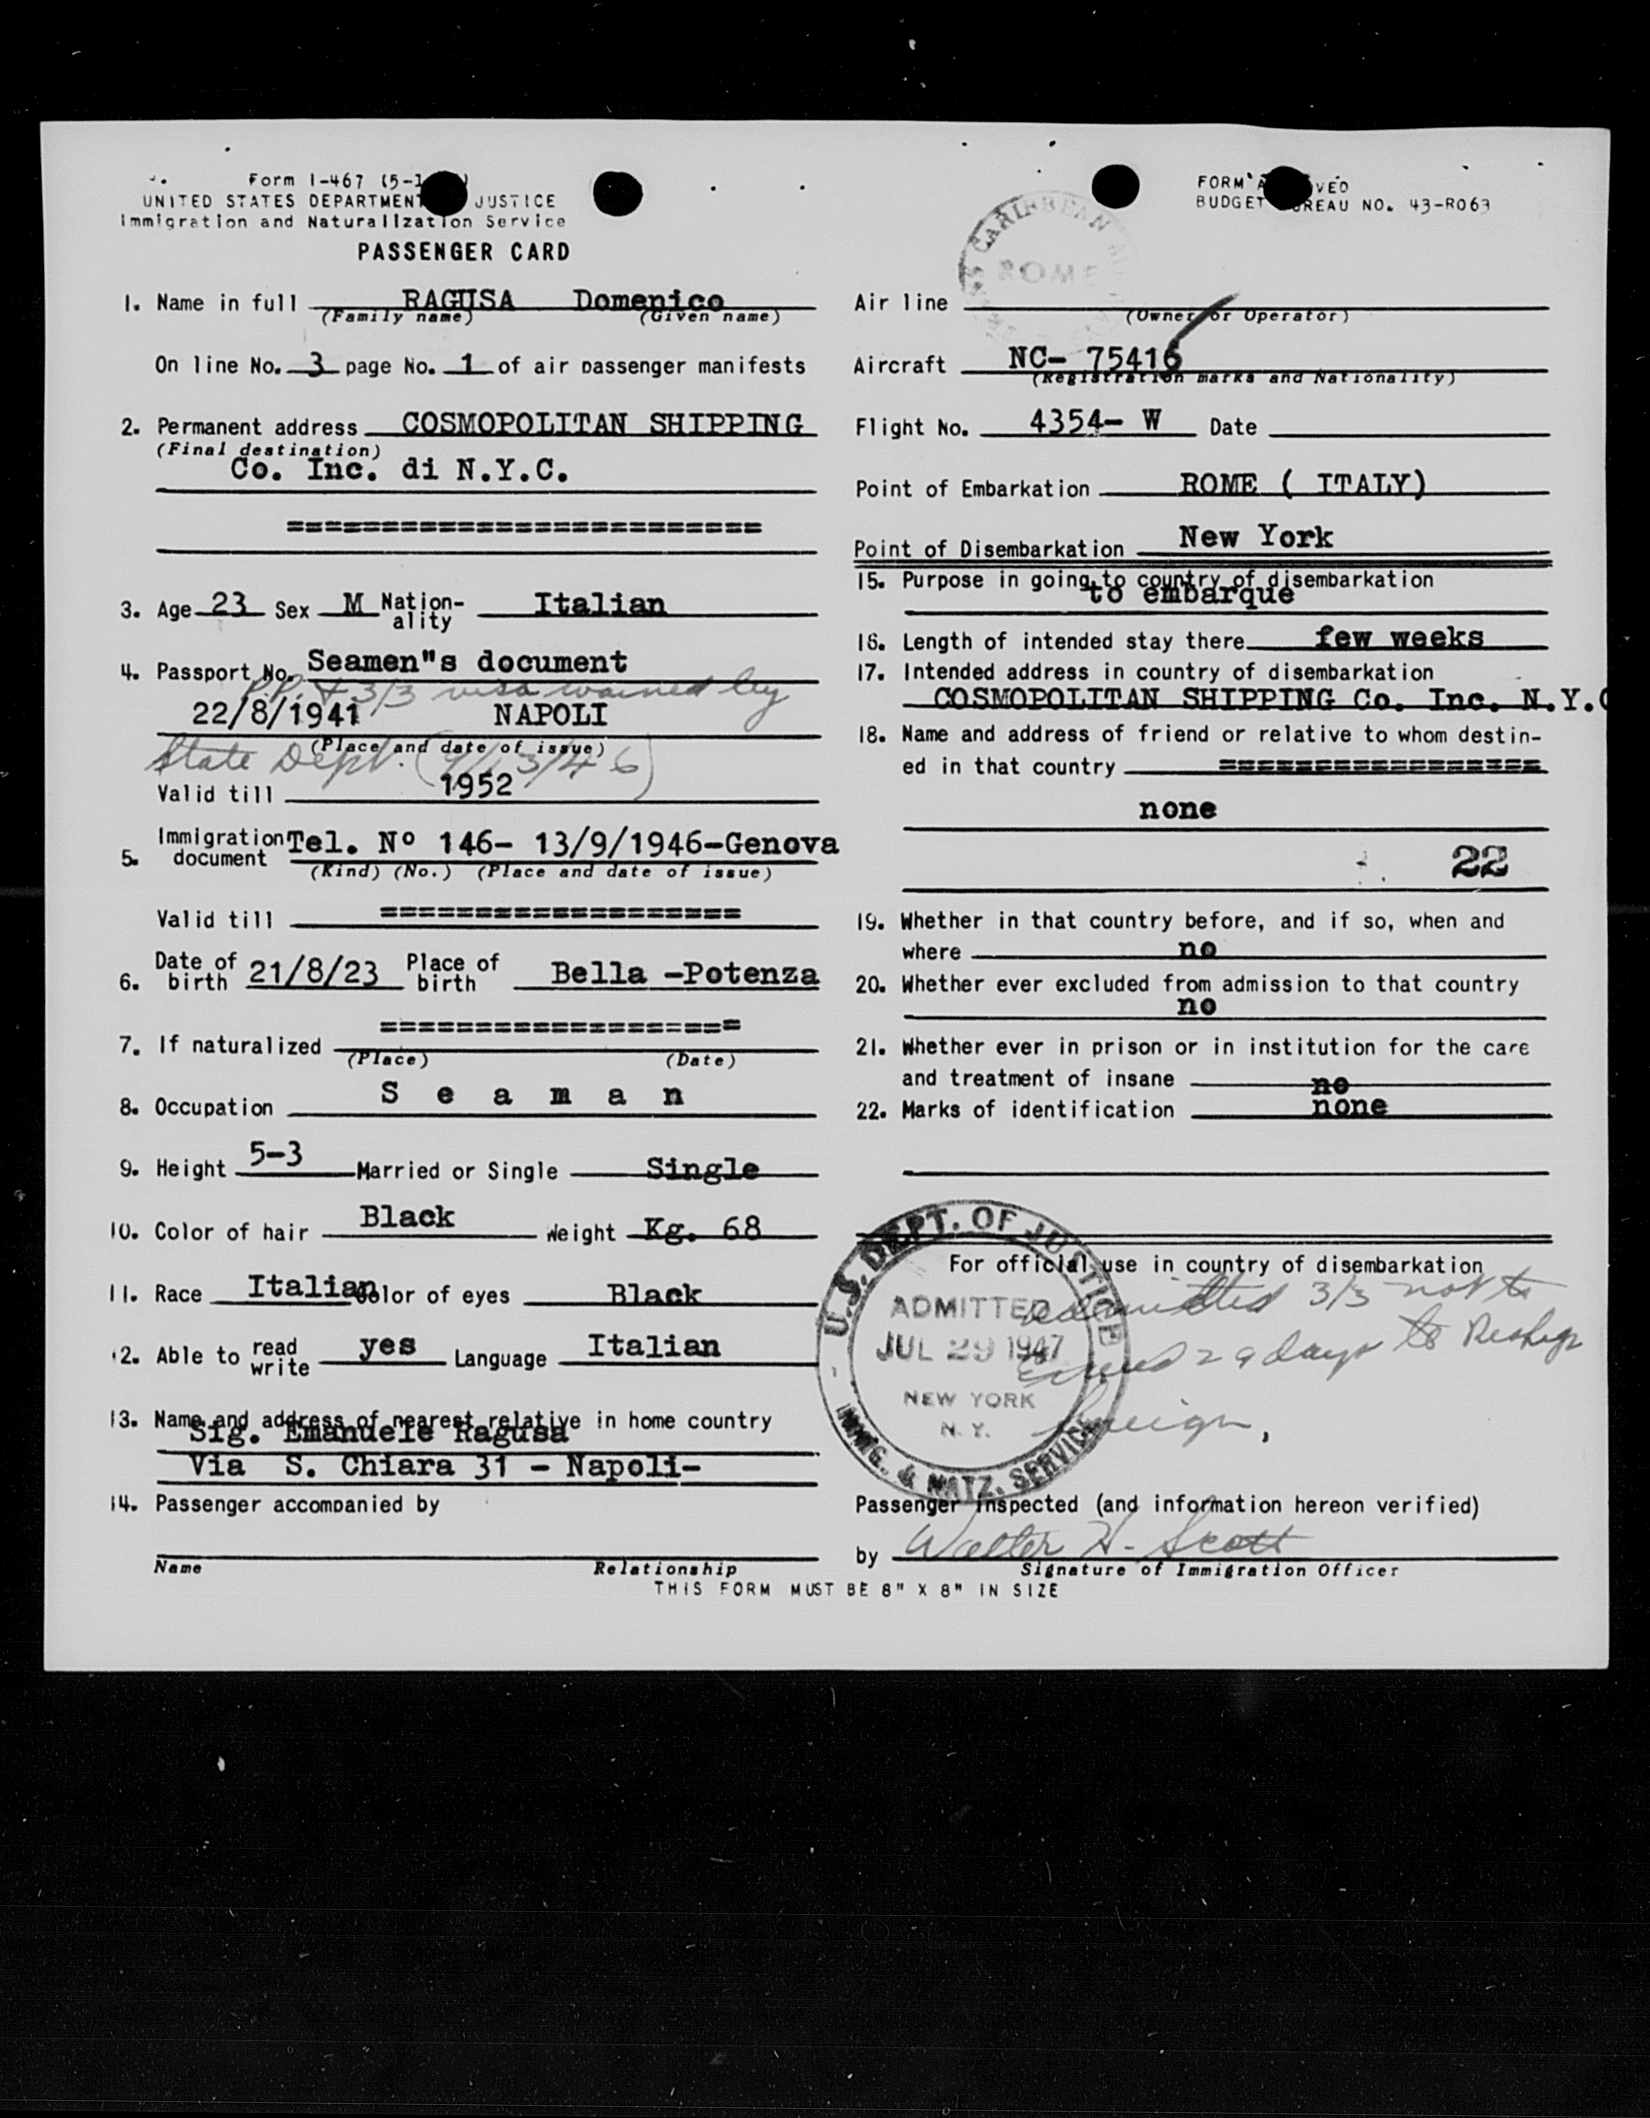 Form I-467 (5-1
UNITED STATES DEPARTMENT JUSTICE
Immigration and Naturalization Service
PASSENGER CARD
1. Name in full RAGUSA Domenico
(Family name) (Given name)
On line No. 3 page No. 1 of air passenger manifests
2. Permanent address COSMOPOLITAN SHIPPING
(Final destination)
Co. Inc. di N.Y.C.
=========================
3. Age 23 Sex M Nation-ality Italian
4. Passport No. Seamen"s document
P.P. & 3/3 visa waived by
22/8/1941 NAPOLI
(Place and date of issue)
State Dept. (9/13/46)
Valid till 1952
5. Immigration document Tel. Nº 146- 13/9/1946-Genova
(Kind) (No.) (Place and date of issue)
Valid till ===================
6. Date of birth 21/8/23 Place of birth Bella -Potenza
7. If naturalized ===================
(Place) (Date)
8. Occupation S e a m a n
9. Height 5-3 Married or Single Single
10. Color of hair Black Weight Kg. 68
11. Race Italian Color of eyes Black
12. Able to read write yes Language Italian
13. Name and address of nearest relative in home country
Sig. Emanuele Ragusa
Via S. Chiara 31 - Napoli-
14. Passenger accompanied by
Name Relationship
FORM APPROVED
BUDGET BUREAU NO. 43-R063
CARIBBEAN
ROME
Air line
(Owner or Operator)
Aircraft NC- 75416
(Registration marks and Nationality)
Flight No. 4354- W Date
Point of Embarkation ROME ( ITALY)
Point of Disembarkation New York
15. Purpose in going to country of disembarkation
to embarque
16. Length of intended stay there few weeks
17. Intended address in country of disembarkation
COSMOPOLITAN SHIPPING Co. Inc. N.Y.C
18. Name and address of friend or relative to whom destin-
ed in that country =================
none
22
19. Whether in that country before, and if so, when and
where no
20. Whether ever excluded from admission to that country
no
21. Whether ever in prison or in institution for the care
and treatment of insane no
22. Marks of identification none
For official use in country of disembarkation
U.S. DEPT. OF JUSTICE
ADMITTED
JUL 29 1947
NEW YORK
N. Y.
IMMIG. & NATZ. SERVICE
admitted 3/3 not to
exceed 29 days to Reship
foreign,
Passenger inspected (and information hereon verified)
by Walter H. Scott
Signature of Immigration Officer
THIS FORM MUST BE 8" X 8" IN SIZE